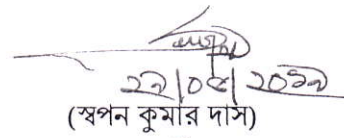 ২২|০৫|২০১৯
(স্বপন কুমার দাস)